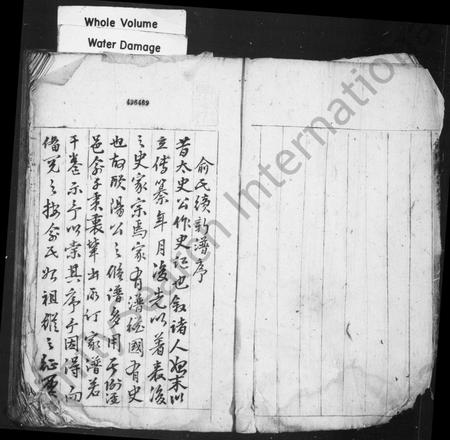 Whole Volume
Water Damage
496489
俞氏續新譜序
昔太史公作史記也敘諸人始末以
立傳纂年月後先以著表後
之史家宗焉家有譜猶國有史
也故歐陽公之修譜多用其例注
邑俞子秉襄輩出所訂家譜若
干卷示予以崇其序予因得而
備見之按俞氏始祖縱之征